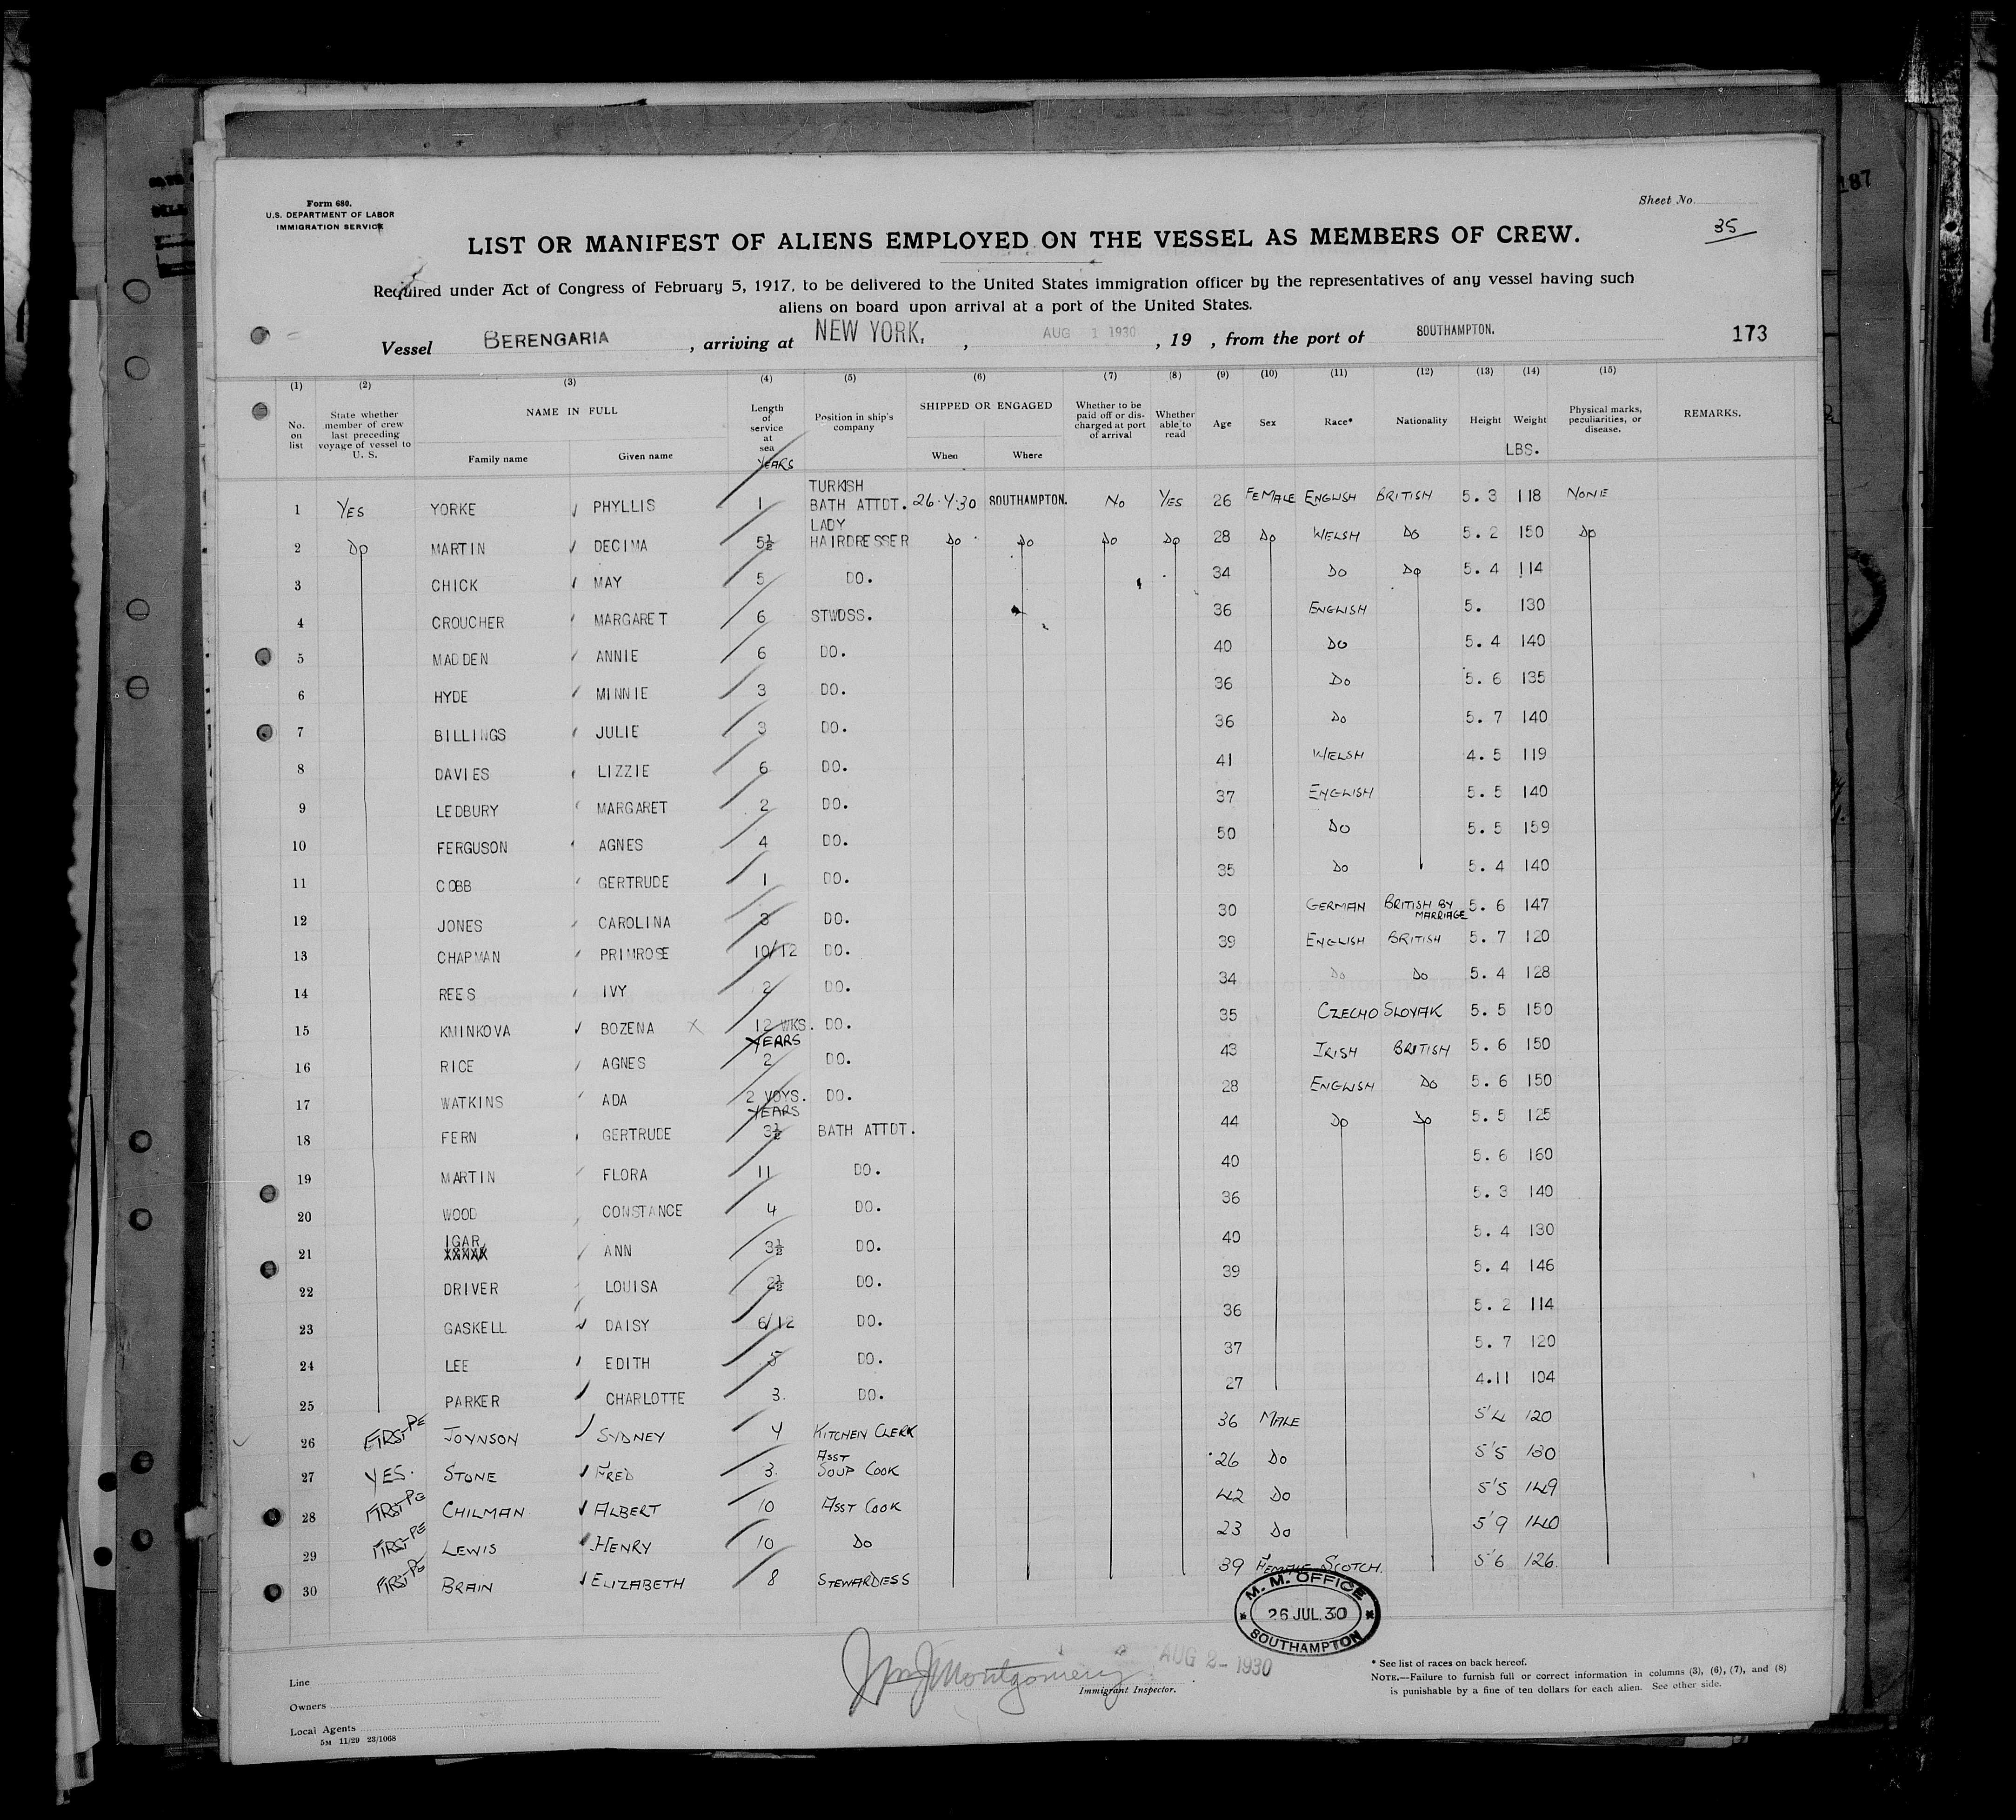 187
Form 680.
U.S. DEPARTMENT OF LABOR
IMMIGRATION SERVICE
Sheet No.
35
LIST OR MANIFEST OF ALIENS EMPLOYED ON THE VESSEL AS MEMBERS OF CREW.
Required under Act of Congress of February 5, 1917, to be delivered to the United States immigration officer by the representatives of any vessel having such
aliens on board upon arrival at a port of the United States.
Vessel BERENGARIA , arriving at NEW YORK, , AUG 1 1930 , 19 , from the port of SOUTHAMPTON. 173
(1) (2) (3) (4) (5) (6) (7) (8) (9) (10) (11) (12) (13) (14) (15)
No. on list State whether member of crew last preceding voyage of vessel to U. S. NAME IN FULL Family name Given name Length of service at sea YEARS Position in ship's company SHIPPED OR ENGAGED When Where Whether to be paid off or discharged at port of arrival Whether able to read Age Sex Race* Nationality Height Weight LBS. Physical marks, peculiarities, or disease. REMARKS.
1 YES YORKE PHYLLIS 1 TURKISH BATH ATTDT. 26.4.30 SOUTHAMPTON. NO YES 26 FEMALE ENGLISH BRITISH 5. 3 118 NONE
2 DO MARTIN DECIMA 5½ LADY HAIRDRESSER DO DO DO DO 28 DO WELSH DO 5. 2 150 DO
3 CHICK MAY 5 DO. 34 DO DO 5. 4 114
4 CROUCHER MARGARET 6 STWDSS. 36 ENGLISH 5. 130
5 MADDEN ANNIE 6 DO. 40 DO 5. 4 140
6 HYDE MINNIE 3 DO. 36 DO 5. 6 135
7 BILLINGS JULIE 3 DO. 36 DO 5. 7 140
8 DAVIES LIZZIE 6 DO. 41 WELSH 4. 5 119
9 LEDBURY MARGARET 2 DO. 37 ENGLISH 5. 5 140
10 FERGUSON AGNES 4 DO. 50 DO 5. 5 159
11 COBB GERTRUDE 1 DO. 35 DO 5. 4 140
12 JONES CAROLINA 3 DO. 30 GERMAN BRITISH BY MARRIAGE 5. 6 147
13 CHAPMAN PRIMROSE 10/12 DO. 39 ENGLISH BRITISH 5. 7 120
14 REES IVY 2 DO. 34 DO DO 5. 4 128
15 KMINKOVA BOZENA X 12 WKS. DO. 35 CZECHO SLOVAK 5. 5 150
16 RICE AGNES YEARS 2 DO. 43 IRISH BRITISH 5. 6 150
17 WATKINS ADA 2 VOYS. DO. 28 ENGLISH DO 5. 6 150
18 FERN GERTRUDE YEARS 3½ BATH ATTDT. 44 DO DO 5. 5 125
19 MARTIN FLORA 11 DO. 40 5. 6 160
20 WOOD CONSTANCE 4 DO. 36 5. 3 140
21 IGAR ANN 3½ DO. 40 5. 4 130
22 DRIVER LOUISA 2½ DO. 39 5. 4 146
23 GASKELL DAISY 6/12 DO. 36 5. 2 114
24 LEE EDITH 5 DO. 37 5. 7 120
25 PARKER CHARLOTTE 3. DO. 27 4.11 104
26 FIRST JOYNSON SYDNEY 4 KITCHEN CLERK 36 MALE 5'4 120
27 YES. STONE FRED 3. ASST SOUP COOK 26 DO 5'5 130
28 FIRST CHILMAN ALBERT 10 ASST COOK 42 DO 5'5 149
29 FIRST LEWIS HENRY 10 DO 23 DO 5'9 140
30 FIRST BRAIN ELIZABETH 8 STEWARDESS 39 FEMALE SCOTCH. 5'6 126.
M. M. OFFICE
26 JUL.30
SOUTHAMPTON
Line
Owners
Local Agents
5M 11/29 23/1068
Wm J Montgomery AUG 2- 1930
Immigrant Inspector.
* See list of races on back hereof.
NOTE.—Failure to furnish full or correct information in columns (3), (6), (7), and (8)
is punishable by a fine of ten dollars for each alien. See other side.